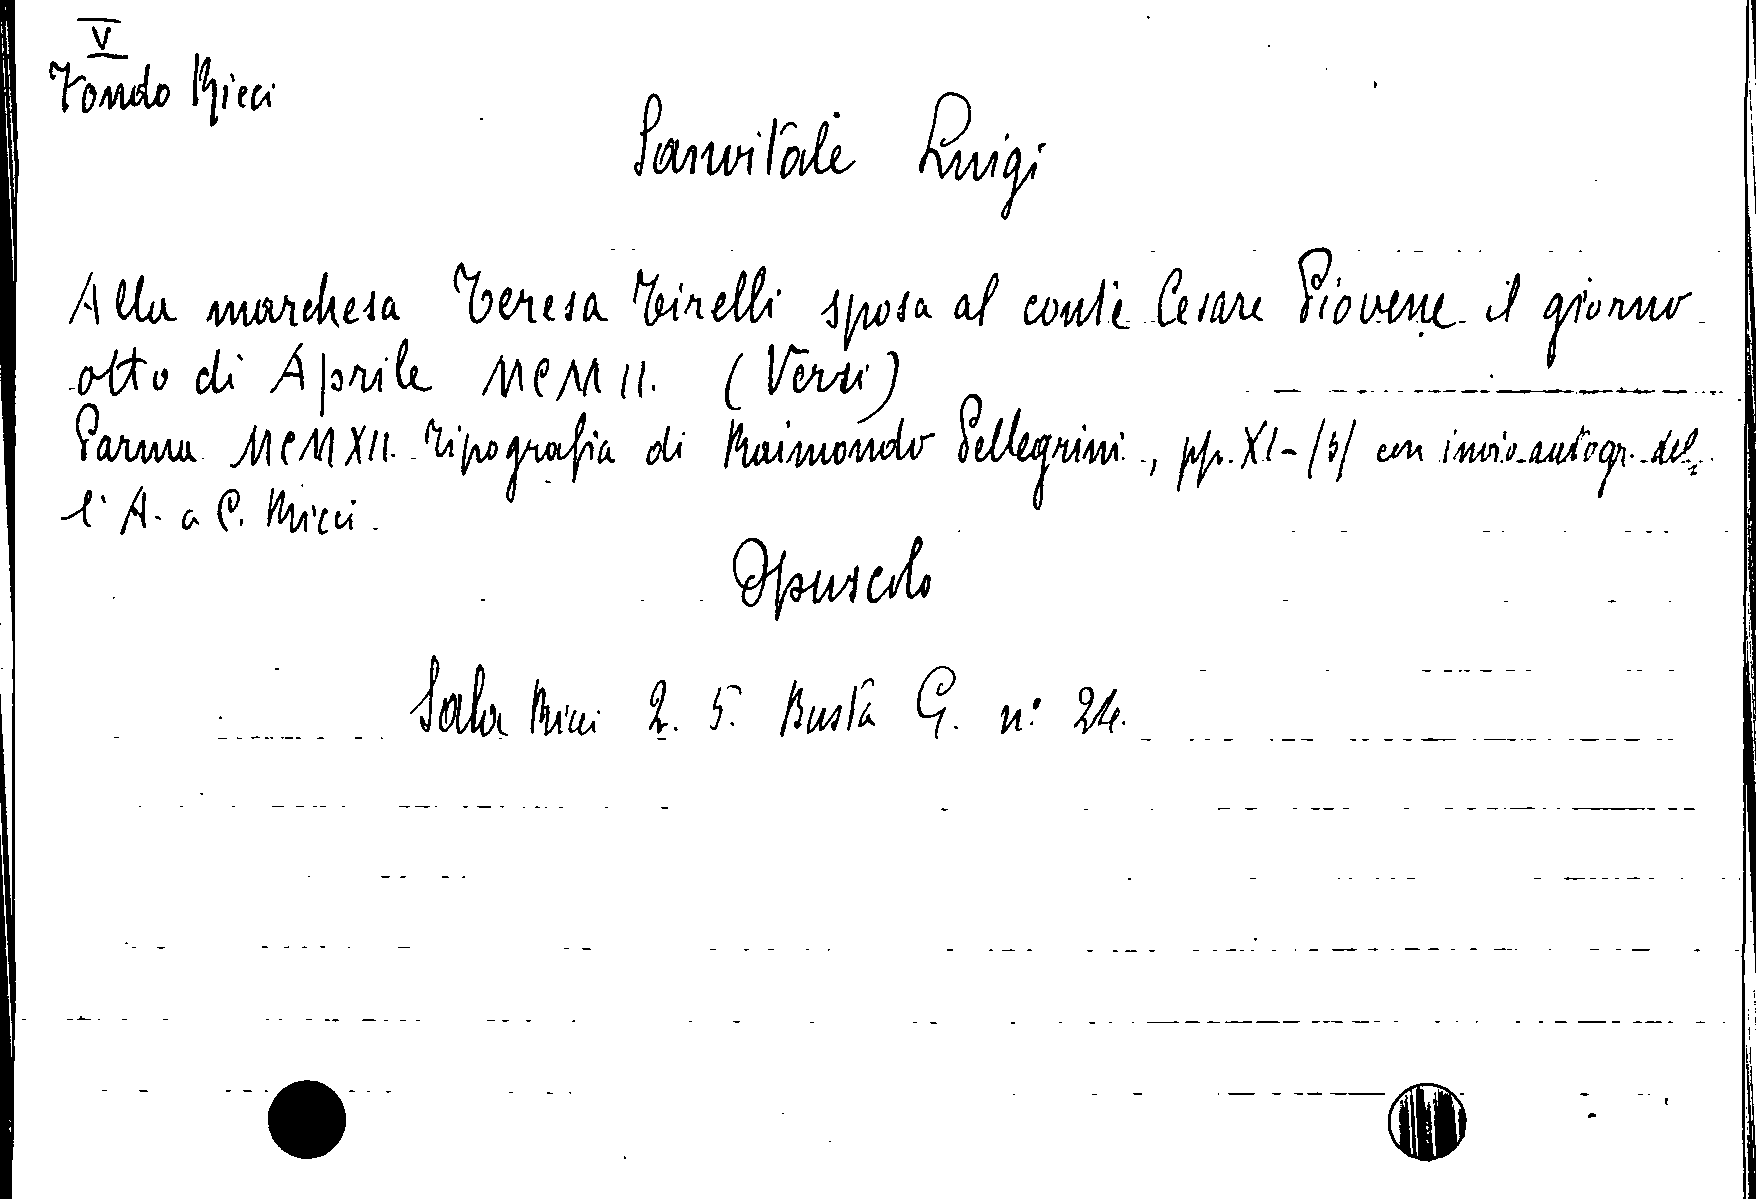 V
Fondo Ricci
Sanvitale Luigi
Alla marchesa Teresa Tirelli sposa al conte Cesare Piovene il giorno
otto di Aprile MCMII. (Versi)
Parma MCMXII. Tipografia di Raimondo Pellegrini, pp. XI-/3/ con invio autogr. del=
l'A. a C. Ricci.
Opuscolo
Sala Ricci 2. 5. Busta G. n° 24.